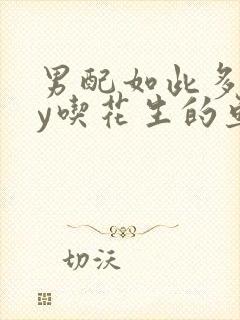 男配如此多
y喫花生的
切沃